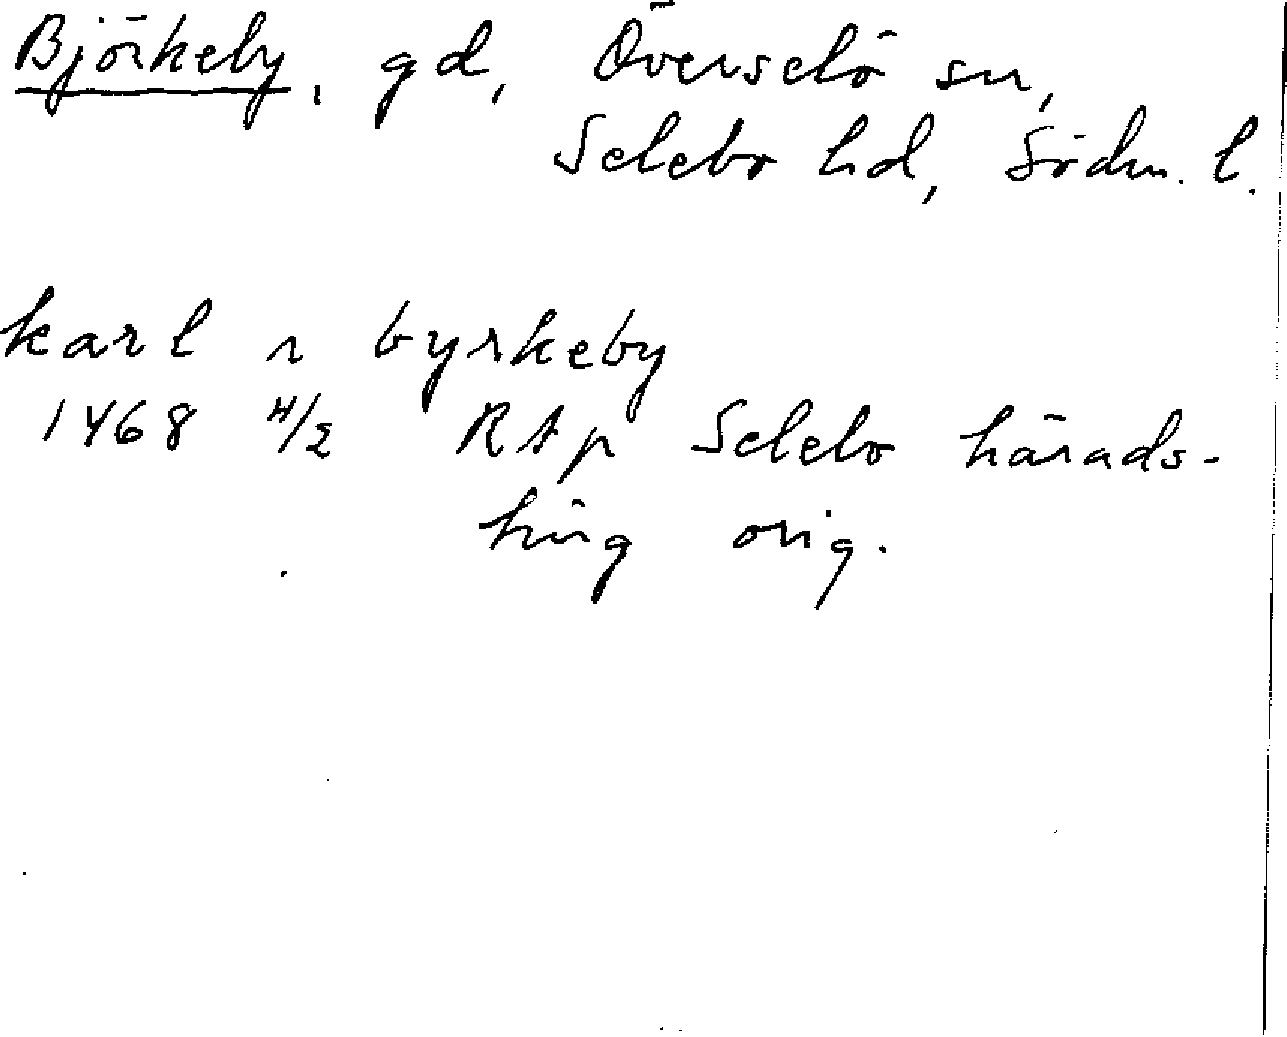 Björkeby, gd, Överselö sn,
Selebo hd, Södm. l.
karl i byrkeby
1468 4/2 RAp Selebo härads-
ting orig.